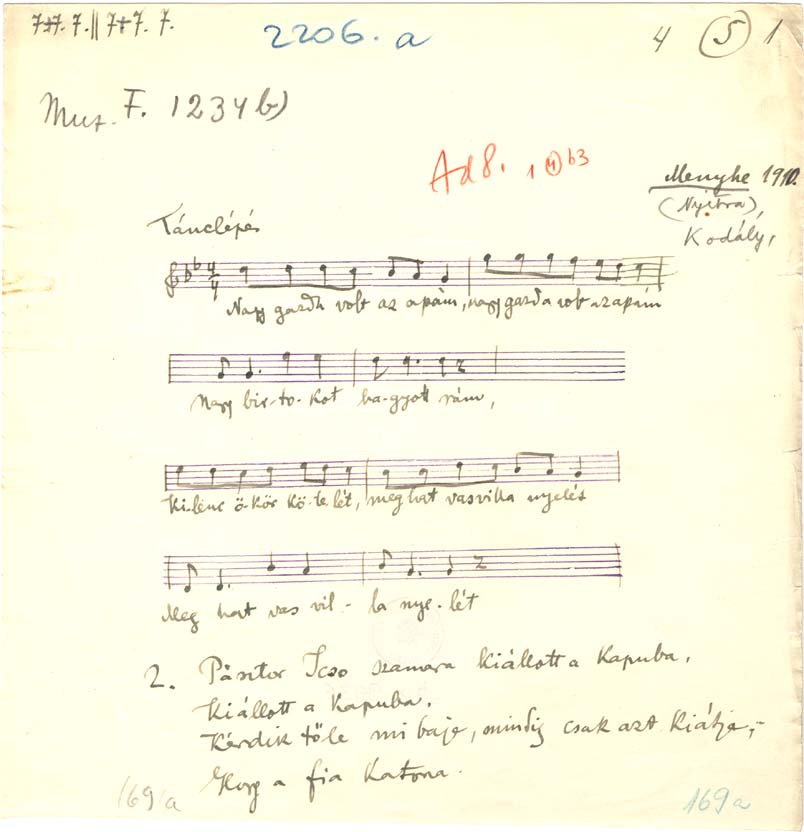 7+7. 7.|| 7+7. 7.
2206. a
4 (5) 1
Muz. F. 1234 b)
Ad 8. 1 (4) b3
Menyhe 1910.
(Nyitra)
Kodály,
Tánclépés
4/4
Nagy gazda volt az apám, nagy gazda volt az apám
Nagy bir-to-kot ha-gyott rám,
Ki-lenc ö-kör kö-te-lét, meg hat vasvilla nyelét
Meg hat vas vil-la nye-lét
2. Pásztor Icso szamara kiállott a kapuba,
kiállott a kapuba.
Kérdik tőle mi baja, mindig csak azt kiátja,-
Hogy a fia katona.
169/a
169 a